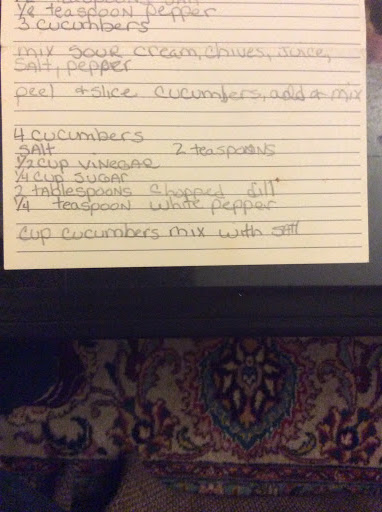 1/8 teaspoon pepper
3 cucumbers
mix sour cream, chives, juice,
salt, pepper
peel & slice cucumbers, add & mix
4 cucumbers
salt 2 teaspoons
1/2 cup vinegar
1/4 cup sugar
2 tablespoons chopped dill
1/4 teaspoon white pepper
cup cucumbers mix with salt